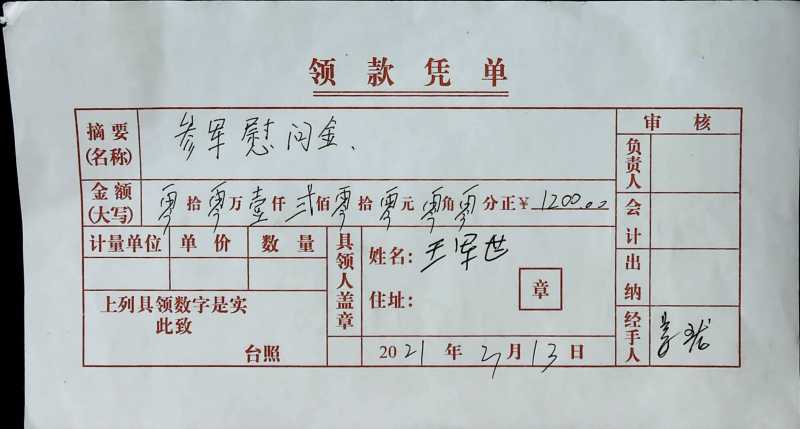 领款凭单
摘要(名称) 参军慰问金、
金额(大写) 零拾零万壹仟弍佰零拾零元零角零分正¥ 1200.00
计量单位 单价 数量
上列具领数字是实
此致
台照
具领人盖章
姓名: 王军世
住址:
章
2021年2月13日
审核
负责人
会计
出纳
经手人